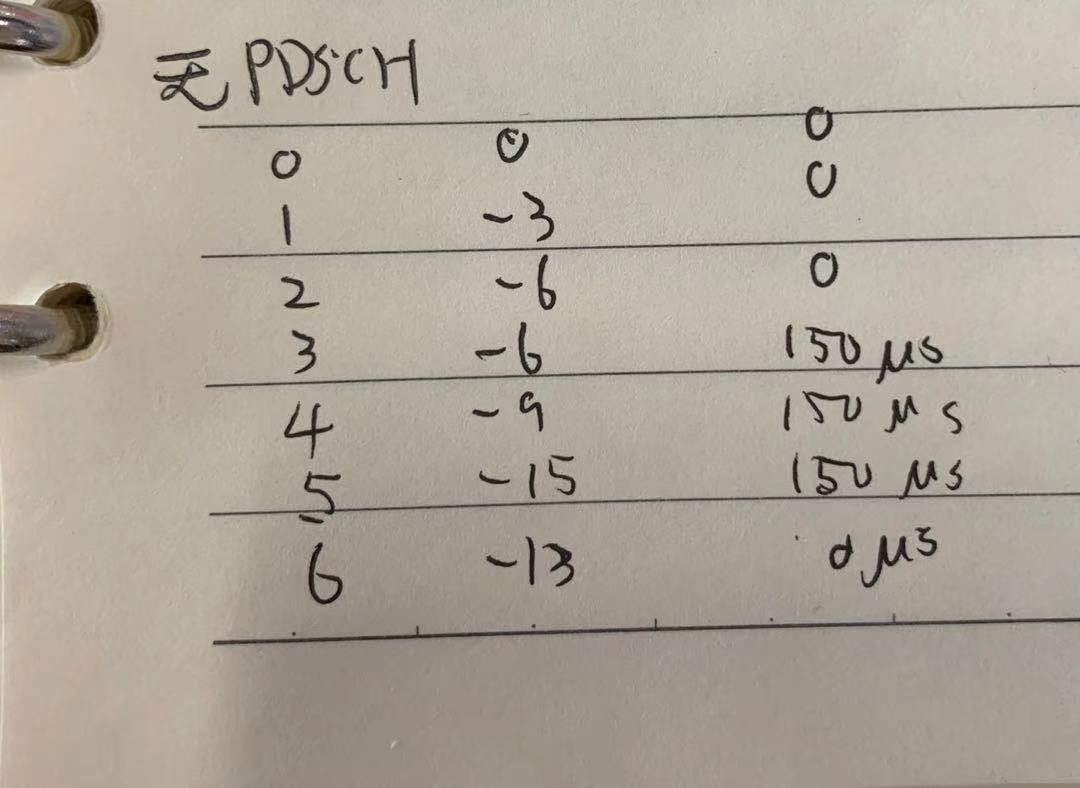 无 PDSCH
0 0 0
1 -3 0
2 -6 0
3 -6 150 μs
4 -9 150 μs
5 -15 150 μs
6 -13 0 μs